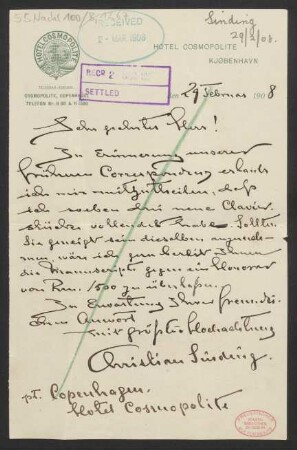 Sinding
29/2/08.
RECEIVED
2 - MAR 1908
HOTEL COSMOPOLITE
HOTEL COSMOPOLITE
KJØBENHAVN
TELEGRAM-ADRESSE:
COSMOPOLITE, COPENHAGEN
RECD 2
SETTLED
den 29 Februar 1908
Sehr geehrter Herr!
In Erinnerung unserer
früheren Correspondenz erlaube
ich mir mitzutheilen, daß
ich soeben drei neue Clavier-
stücke vollendet habe. Sollten
Sie geneigt sein dieselben anzuneh-
men, wäre ich gern bereit Ihnen
die Manuscripte gegen ein Honorar
von Rm. 1500 zu überlaßen.
In Erwartung Ihrer freundli-
chen Antwort
mit größter Hochachtung
Christian Sinding.
pt. Copenhagen.
Hotel Cosmopolite